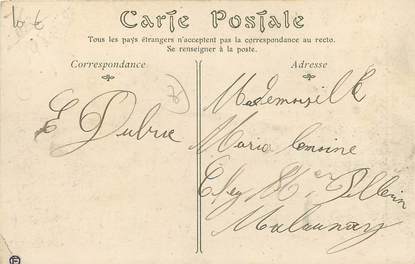 10 €
Carte Postale
Tous les pays étrangers n'acceptent pas la correspondance au recto.
Se renseigner à la poste.
Correspondance
Adresse
E Dubuc
Mademoiselle
Maria Lemoine
Chez Mr
Malaunay